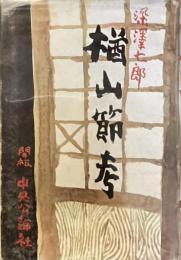 深澤七郎
楢山節考
中央公論社